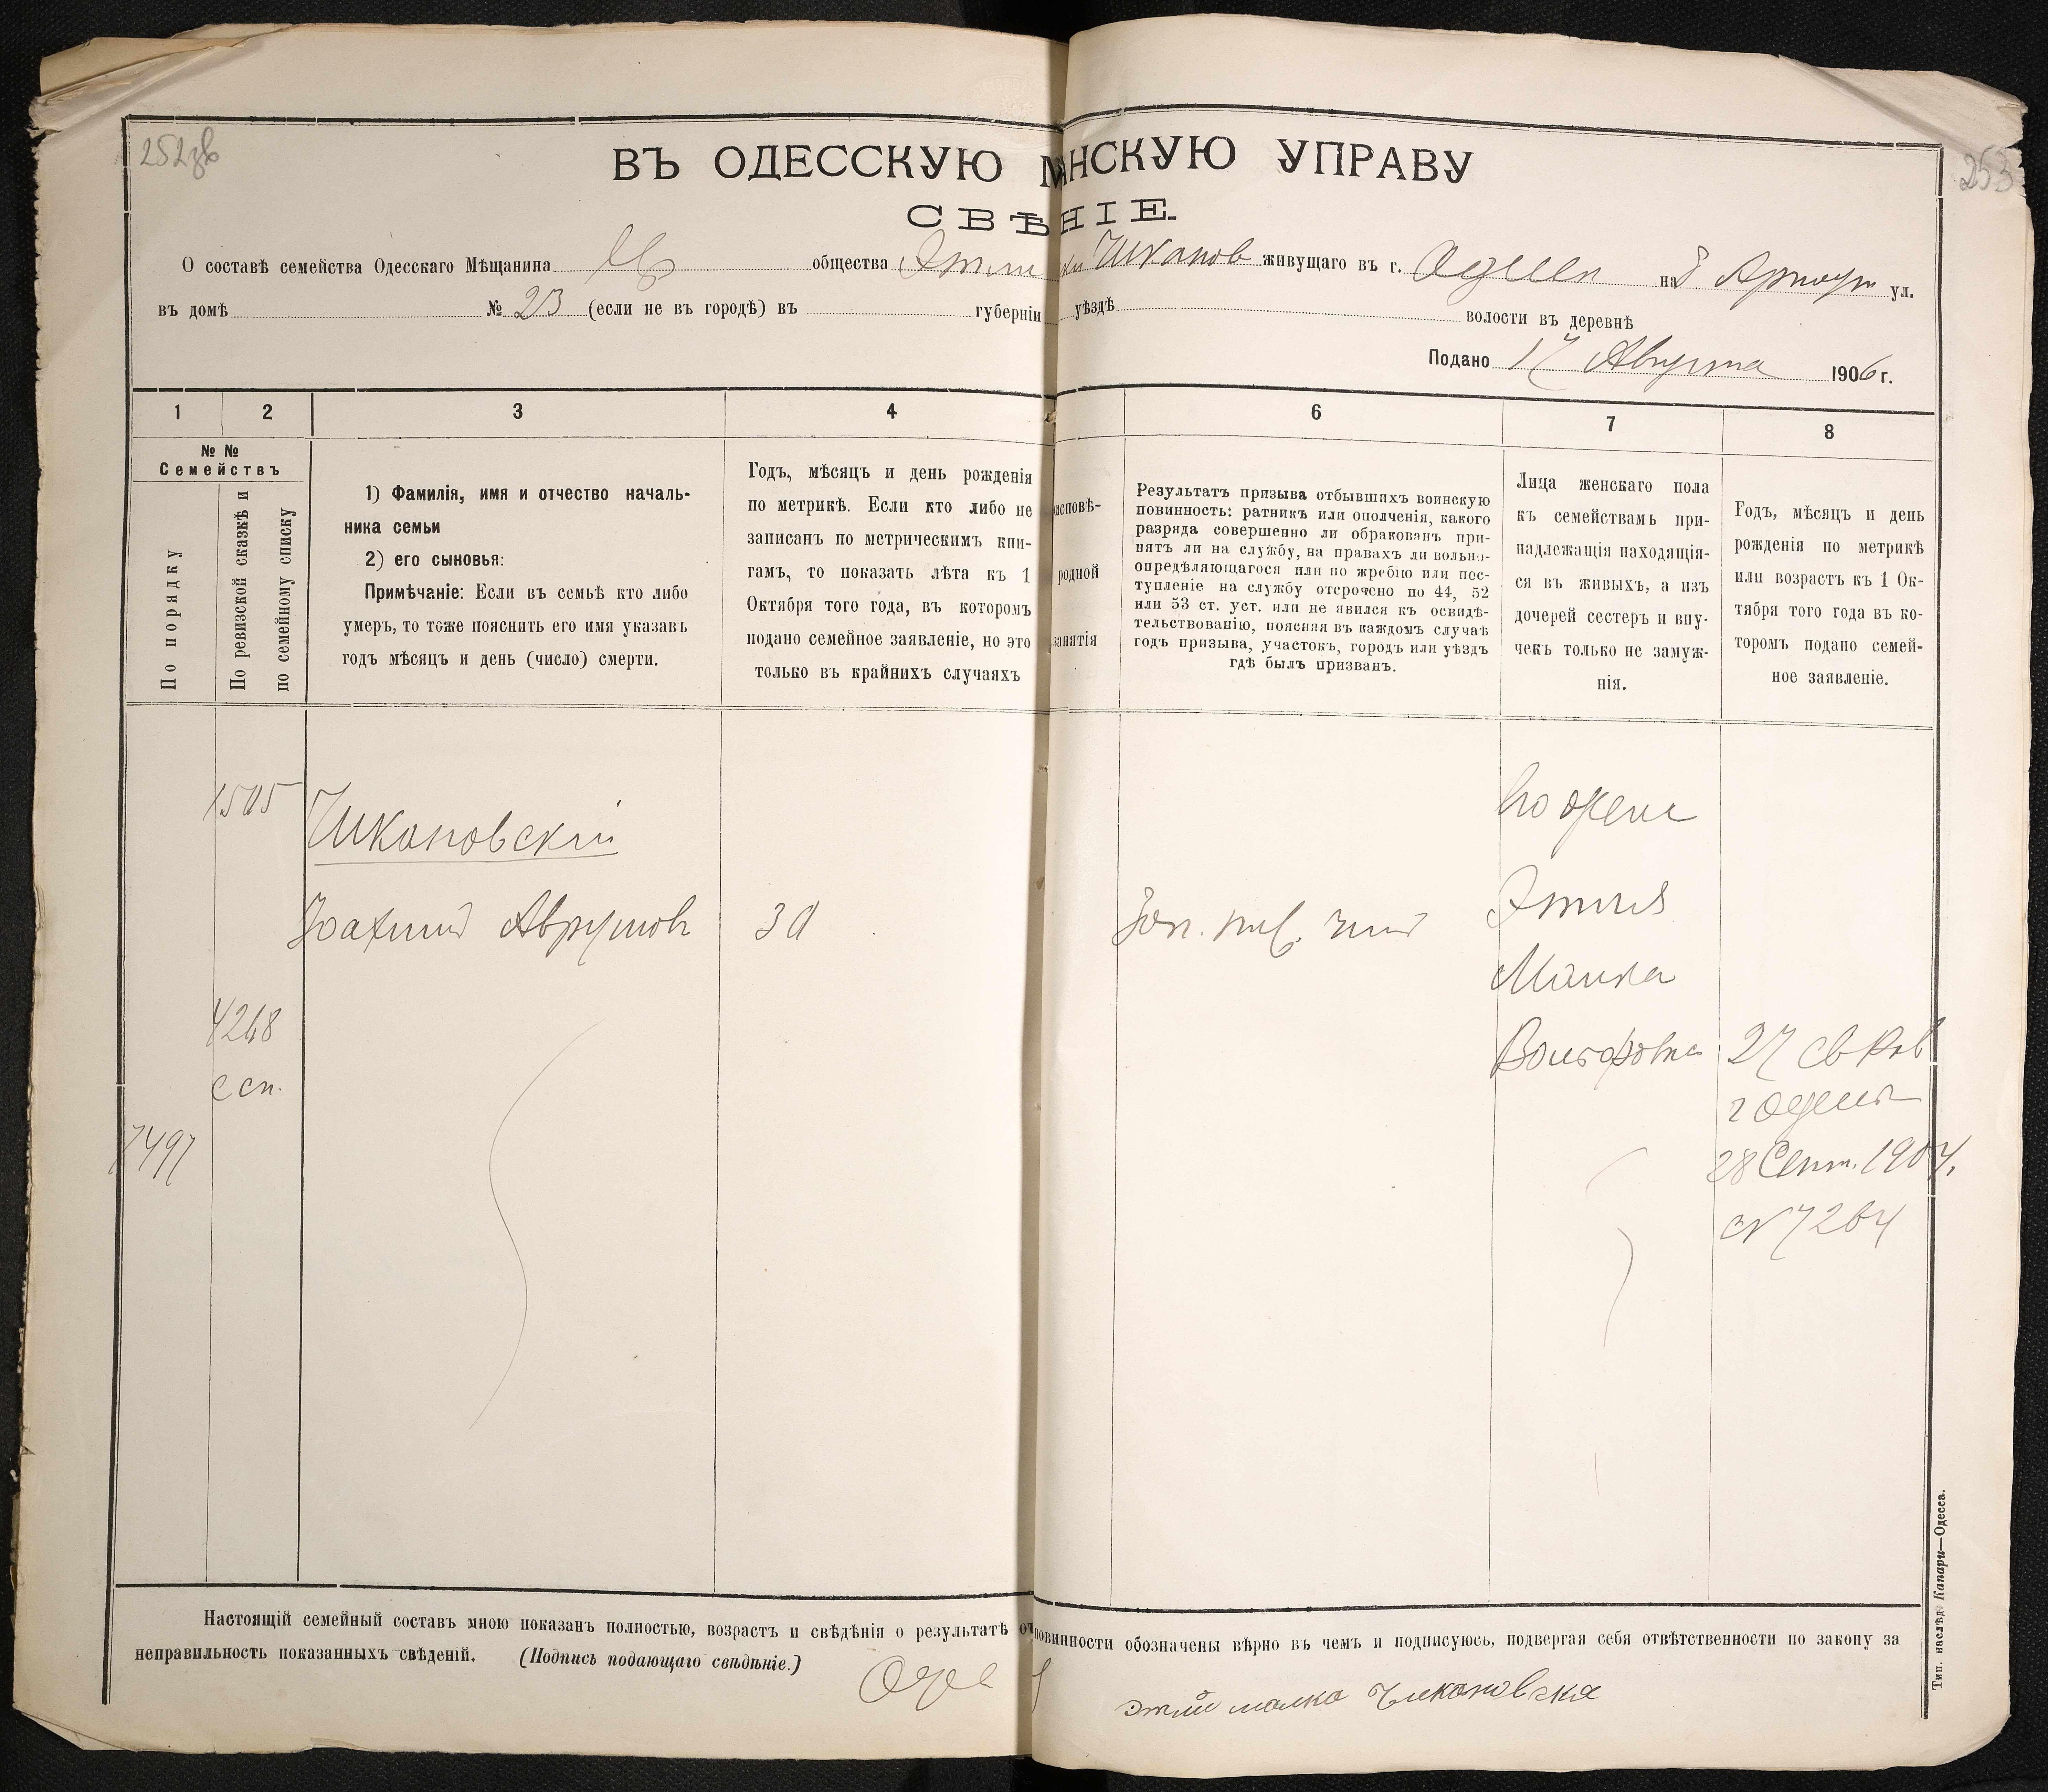 252об
253
ВЪ ОДЕССКУЮ М НСКУЮ УПРАВУ
СВѢ НІЕ.
О составѣ семейства Одесскаго Мѣщанина общества живущаго въ г. Одессѣ на Б Арнаут ул.
въ домѣ № 23 (если не въ городѣ) въ губерніи уѣздѣ волости въ деревнѣ
Подано 17 Августа 1906 г.
1 2 3 4 6 7 8
№ № Семействъ
По порядку
По ревизской сказкѣ и
по семейному списку
1) Фамилія, имя и отчество началь-
ника семьи
2) его сыновья:
Примѣчаніе: Если въ семьѣ кто либо
умеръ, то тоже пояснить его имя указавъ
годъ мѣсяцъ и день (число) смерти.
Годъ, мѣсяцъ и день рожденія
по метрикѣ. Если кто либо не
записанъ по метрическимъ кни-
гамъ, то показать лѣта къ 1
Октября того года, въ которомъ
подано семейное заявленіе, но это
только въ крайнихъ случаяхъ
исповѣ-
родной
занятія
Результатъ призыва отбывшихъ воинскую
повинность: ратникъ или ополченія, какого
разряда совершенно ли обракованъ при-
нятъ ли на службу, на правахъ ли вольно-
опредѣляющагося или по жребію или пос-
тупленіе на службу отсрочено по 44, 52
или 53 ст. уст. или не явился къ освидѣ-
тельствованію, поясняя въ каждомъ случаѣ
годъ призыва, участокъ, городъ или уѣздъ
гдѣ былъ призванъ.
Лица женскаго пола
къ семействамъ при-
надлежащія находящія-
ся въ живыхъ, а изъ
дочерей сестеръ и вну-
чекъ только не замуж-
нія.
Годъ, мѣсяцъ и день
рожденія по метрикѣ
или возрастъ къ 1 Ок-
тября того года въ ко-
торомъ подано семей-
ное заявленіе.
1505
Чикановскій
его жена
Іоахимъ Аврумовъ 30 Зап. ниж. чинъ Этля
Малка
4268 Вольфовна 27 св Рав
с сп. г Одессы
7497 28 Сент. 1904.
N 7264
Настоящій семейный составъ мною показанъ полностью, возрастъ и свѣдѣнія о результатѣ от повинности обозначены вѣрно въ чемъ и подписуюсь, подвергая себя отвѣтственности по закону за
неправильность показанныхъ свѣденій. (Подпись подающаго свѣдѣніе.)
этля малка Чикановская
Тип. наслѣд. Капари—Одесса.